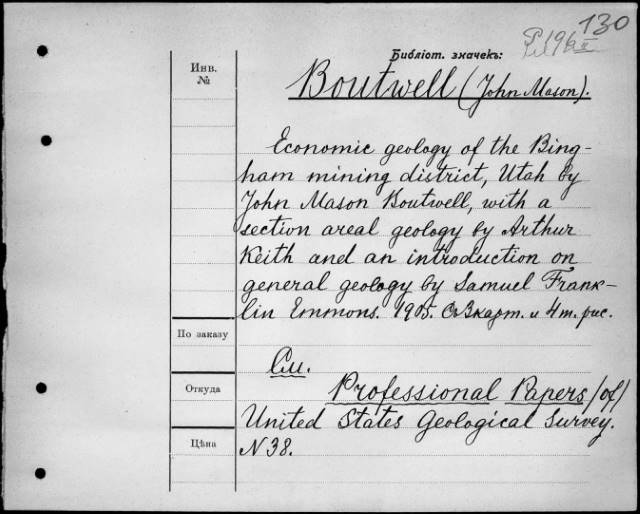 130
Библіот. значекъ:
Инв.
№
Boutwell (John Mason).
Economic geology of the Bing-
ham mining district, Utah by
John Mason Boutwell, with a
section areal geology by Arthur
Keith and an introduction on
general geology by Samuel Frank-
lin Emmons. 1905. Съ 3 карт. и 4 т. рис.
По заказу
См.
Откуда
Professional Papers /of/
United States Geological Survey.
Цѣна
N 38.